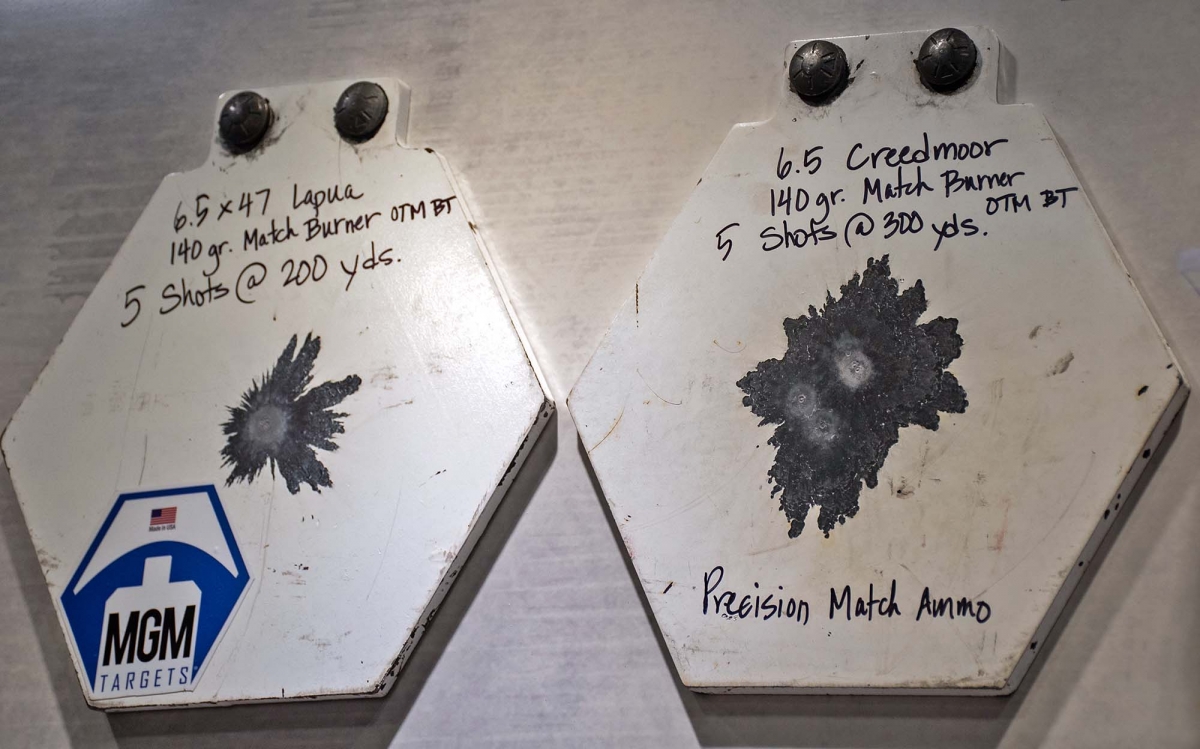 6.5 x 47 Lapua
140 gr. Match Burner OTM BT
5 Shots @ 200 yds.
Made in USA
MGM
TARGETS
6.5 Creedmoor
140 gr. Match Burner OTM BT
5 Shots @ 300 yds.
Precision Match Ammo